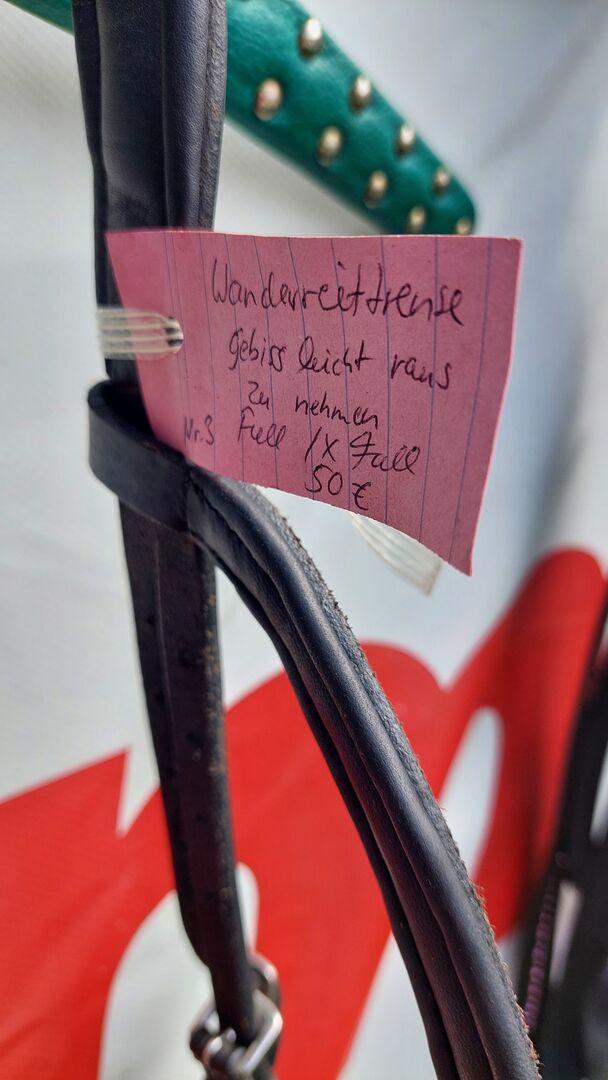 Wanderreittrense
Gebiss leicht raus
zu nehmen
Nr. 3 Full 1x Full
50 €